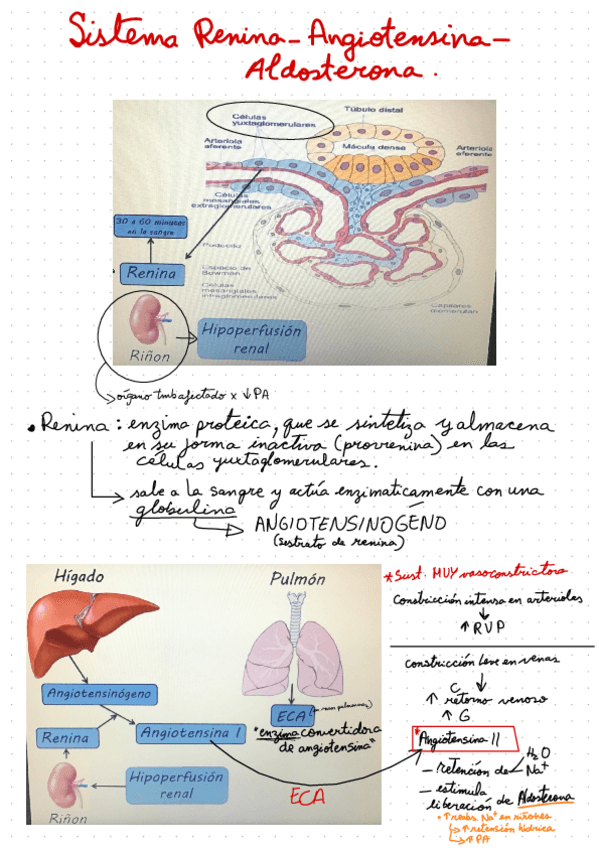 Sistema Renina-Angiotensina-
Aldosterona.
Células
yuxtaglomerulares
Túbulo distal
Arteriola
aferente
Mácula densa
Arteriola
eferente
Células
mesangiales
extraglomerulares
30 a 60 minutos
en la sangre
Renina
Podocito
Espacio de
Bowman
Células
mesangiales
intraglomerulares
Capilares
glomerulari
Riñon
Hipoperfusión
renal
órgano tmb afectado x ↓PA
• Renina: enzima proteica, que se sintetiza y almacena
en su forma inactiva (prorrenina) en las
células yuxtaglomerulares.
sale a la sangre y actúa enzimaticamente con una
globulina
ANGIOTENSINÓGENO
(sustrato de renina)
Hígado
Pulmón
Angiotensinógeno
Renina
Angiotensina I
ECA
"enzima convertidora
de angiotensina"
Hipoperfusión
renal
Riñon
ECA
*Sust. MUY vasoconstrictora
Constricción intensa en arteriolas
↑ RVP
Constricción leve en venas
↑ retorno venoso
↑ G
*Angiotensina II
– retención de H2O
Na+
– estimula
liberación de Aldosterona
• ↑ reabs. Na+ en riñones
↑ retensión hídrica
↑ PA